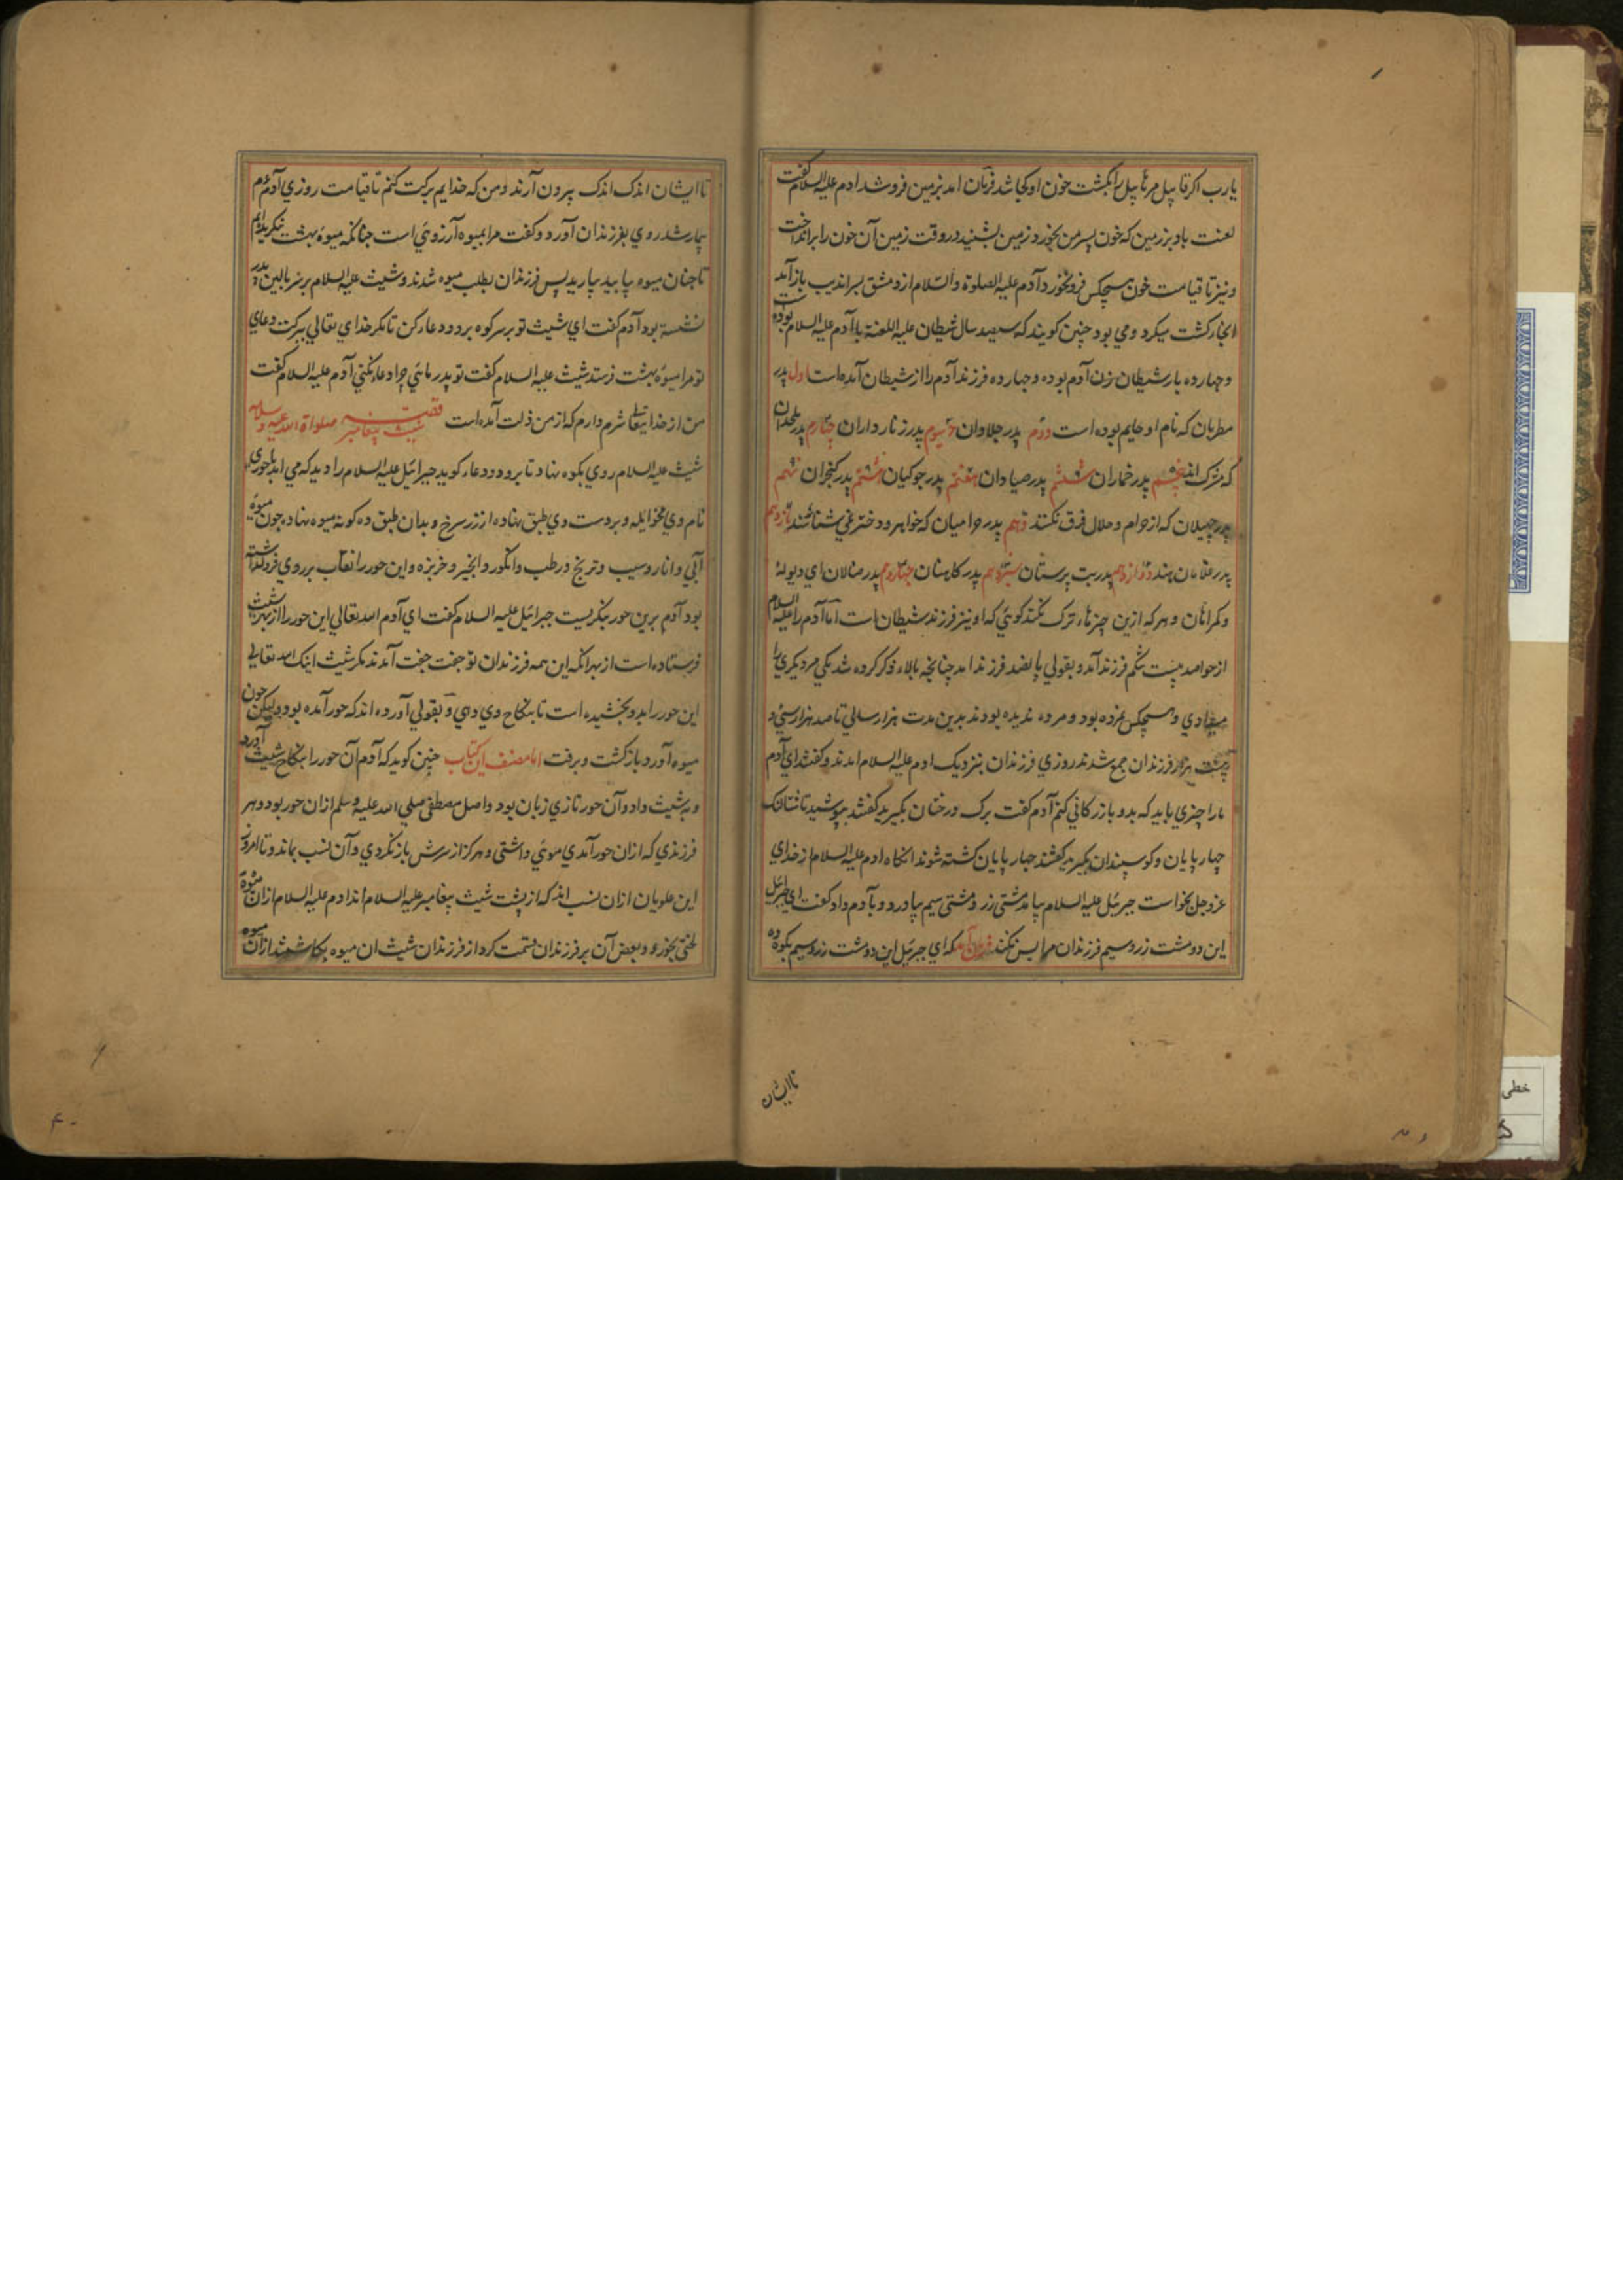 یارب اکر قابیل مر هابیل را بکشت خون او کجا شد فرمان امد بزمین فرو شد ادم علیه السلام کفت
لعنت باد بر زمین که خون پسر من بخورد زمین بشنید در وقت زمین آن خون را برانداخت
و نیز تا قیامت خون هیچکس فرو نخورد و آدم علیه الصلوة والسلام از دمشق بسراندیب باز آمد
انجا کشت میکرد و می بود چنین کویند که سیصد سال شیطان علیه اللعنة با آدم علیه السلام بوده
و چهارده بار شیطان زن آدم بوده و چهارده فرزند آدم را از شیطان آمده است اول پدر
مطربان که نام او حلیم بوده است دوم پدر جلاوان سیوم پدر زنار داران چهارم پدر ملحدان
که مشرک اند پنجم پدر خماران ششم پدر صیادان هفتم پدر جوکیان هشتم پدر کنجران نهم
پدر چپیلان که از حرام و حلال فرق نکنند دهم پدر حرامیان که خواهر و دختر نمی شناسند یازدهم
پدر غلامان هند دوازدهم پدر بت پرستان سیزدهم پدر کاهنان چهاردهم پدر ضالان ای دیوانه
و کمراهان و هر که ازین چیزهاء ترک نکند کوئی که او نیز فرزند شیطان است اما آدم را علیه السلام
از حوا صد بیست شکم فرزند آمد و بقولی پانصد فرزند امد چنانچه بالاء ذکر کرده شد یکی مر دیکری را
میدادی و هیچکس نمرده بود و مرده ندیده بودند بدین مدت هزار سالی تا صد هزار سی و
هشت هزار فرزندان جمع شدند روزی فرزندان بنزدیک ادم علیه السلام امدند و کفتند ای آدم
مارا چیزی باید که بدو بازرکانی کنم آدم کفت برک درختان بکیرید کفتند بپوشید تا شتالنک
چهارپایان و کوسپندان بکیرید کفتند چهارپایان کشته شوند انکاه ادم علیه السلام از خدای
عزوجل بخواست جبرئیل علیه السلام بیامد مشتی زر و مشتی سیم بیاورد و بآدم داد کفت ای جبرئیل
این دو مشت زر و سیم فرزندان مرا بس نکند فرمان آمد که ای جبرئیل این دو مشت زر و سیم بکوه ده
تا ایشان
تا ایشان اندک اندک بیرون آرند و من که خدایم برکت کنم تا قیامت روزی آدم
بیمار شد روی بفرزندان آورد و کفت مرا بمیوه آرزوئی است چنانکه میوه بهشت بنکرید
تا چنان میوه بیابید بیارید پس فرزندان بطلب میوه شدند و شیث علیه السلام بر سر بالین پدر
نشسته بود آدم کفت ای شیث تو بر سر کوه برو و دعا کن تا مکر خدای تعالی ببرکت دعای
تو مرا میوه بهشت فرستد شیث علیه السلام کفت تو پدر مائی چرا دعا نکنی آدم علیه السلام کفت
من از خدایتعالی شرم دارم که از من ذلت آمده است قصه شیث پیغامبر صلواة الله علیه و سلامه
شیث علیه السلام روی بکوه نهاد تا برود و دعا کوید جبرائیل علیه السلام را دید که می اید با حوری
نام وی مخوایله و بر دست وی طبق نهاده از زر سرخ و بدان طبق ده کونه میوه نهاده چون میوهء
آبی و انار و سیب و ترنج و رطب و انکور و انجیر و خربزه و این حور را نقاب بر روی فرو کذاشته
بود آدم برین حور بنکریست جبرائیل علیه السلام کفت ای آدم الله تعالی این حور را از بهر شیث
فرستاده است از بهر انکه این همه فرزندان تو جفت جفت آمدند مکر شیث اینک الله تعالی
این حور را بدو بخشیده است تا بنکاح وی دهی و بقولی آورده اند که حور آمده بود ولیکن چون
میوه آورد باز کشت و برفت اما مصنف این کتاب چنین کوید که آدم آن حور را بنکاح شیث آورد
و به شیث داد و آن حور تازی زبان بود و اصل مصطفی صلی الله علیه و سلم از ان حور بود و هر
فرزندی که از ان حور آمدی موئی داشتی و هرکز از سرش باز نکردی و آن نسب بماند و تا امروز
این علویان از ان نسب اند که از پشت شیث پیغامبر علیه السلام اند ادم علیه السلام از ان میوه
لختی بخورد و بعض آن بر فرزندان قسمت کرد از فرزندان شیث ان میوه بکاشتند از ان میوه
خطی